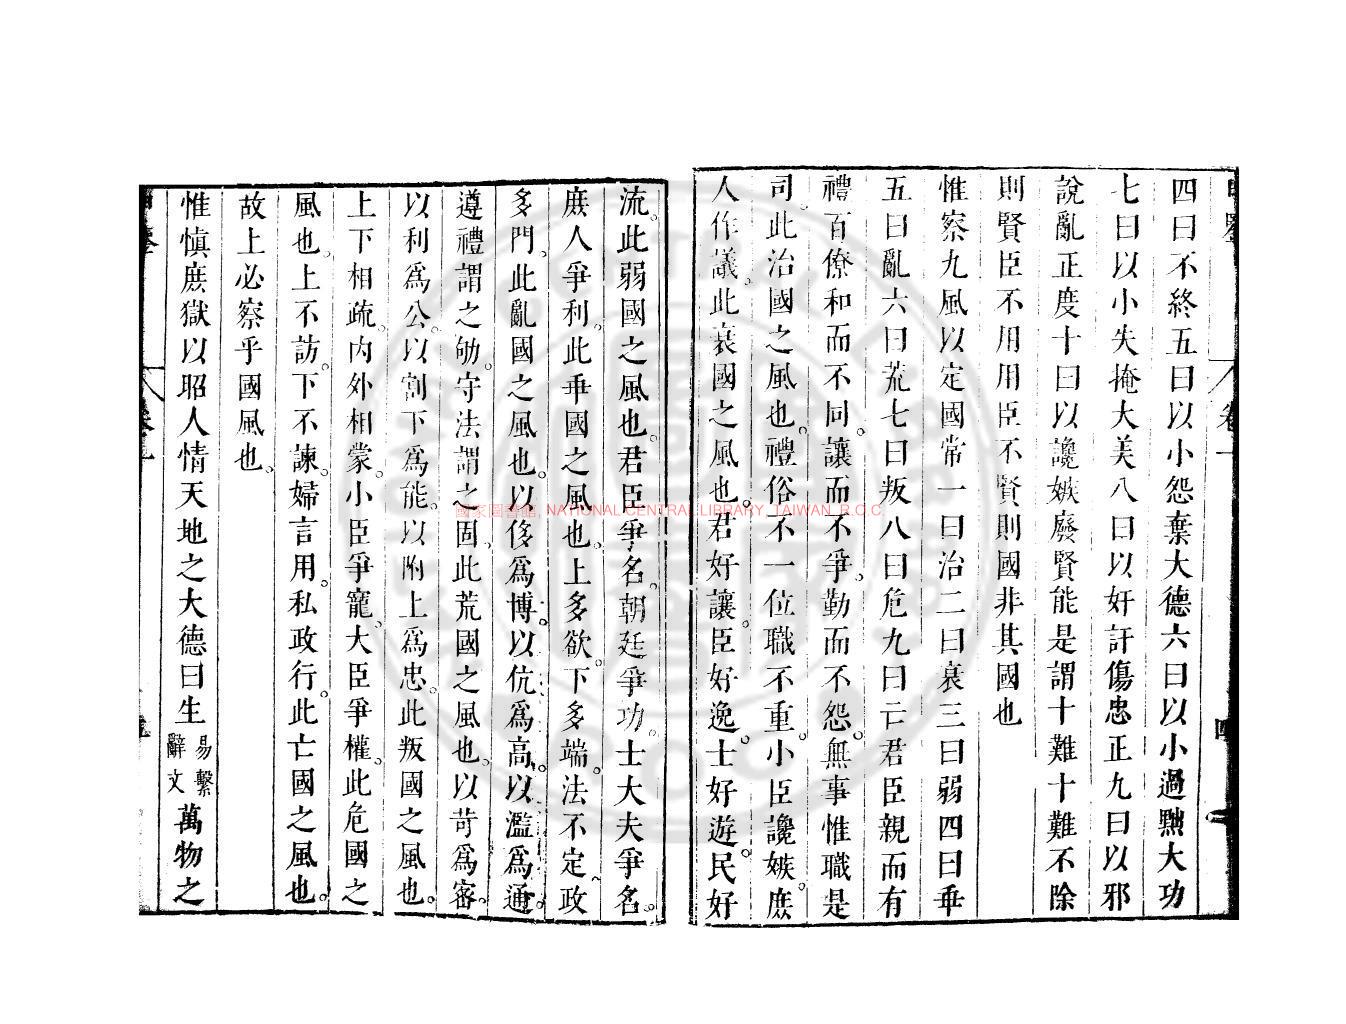 四曰不終五曰以小怨棄大德六曰以小過黜大功
七曰以小失掩大美八曰以奸訐傷忠正九曰以邪
說亂正度十曰以讒嫉廢賢能是謂十難十難不除
則賢臣不用用臣不賢則國非其國也
惟察九風以定國常一曰治二曰衰三曰弱四曰乖
五曰亂六曰荒七曰叛八曰危九曰亡君臣親而有
禮百僚和而不同讓而不爭。勤而不怨。無事惟職是
司。此治國之風也。禮俗不一位職不重。小臣讒嫉。庶
人作議。此衰國之風也。君好讓。臣好逸。士好遊。民好
流。此弱國之風也。君臣爭名。朝廷爭功。士大夫爭名。
庶人爭利。此乖國之風也。上多欲。下多端。法不定。政
多門。此亂國之風也。以侈爲博。以伉爲高。以濫爲通。
遵禮謂之劬。守法謂之固。此荒國之風也。以苛爲密。
以利爲公。以割下爲能。以附上爲忠。此叛國之風也。
上下相疏。內外相蒙。小臣爭寵。大臣爭權。此危國之
風也。上不訪。下不諫。婦言用。私政行。此亡國之風也。
故上必察乎國風也。
惟慎庶獄以昭人情天地之大德曰生易繫辭文萬物之
卷一
四
國家圖書館, NATIONAL CENTRAL LIBRARY, TAIWAN, R.O.C.